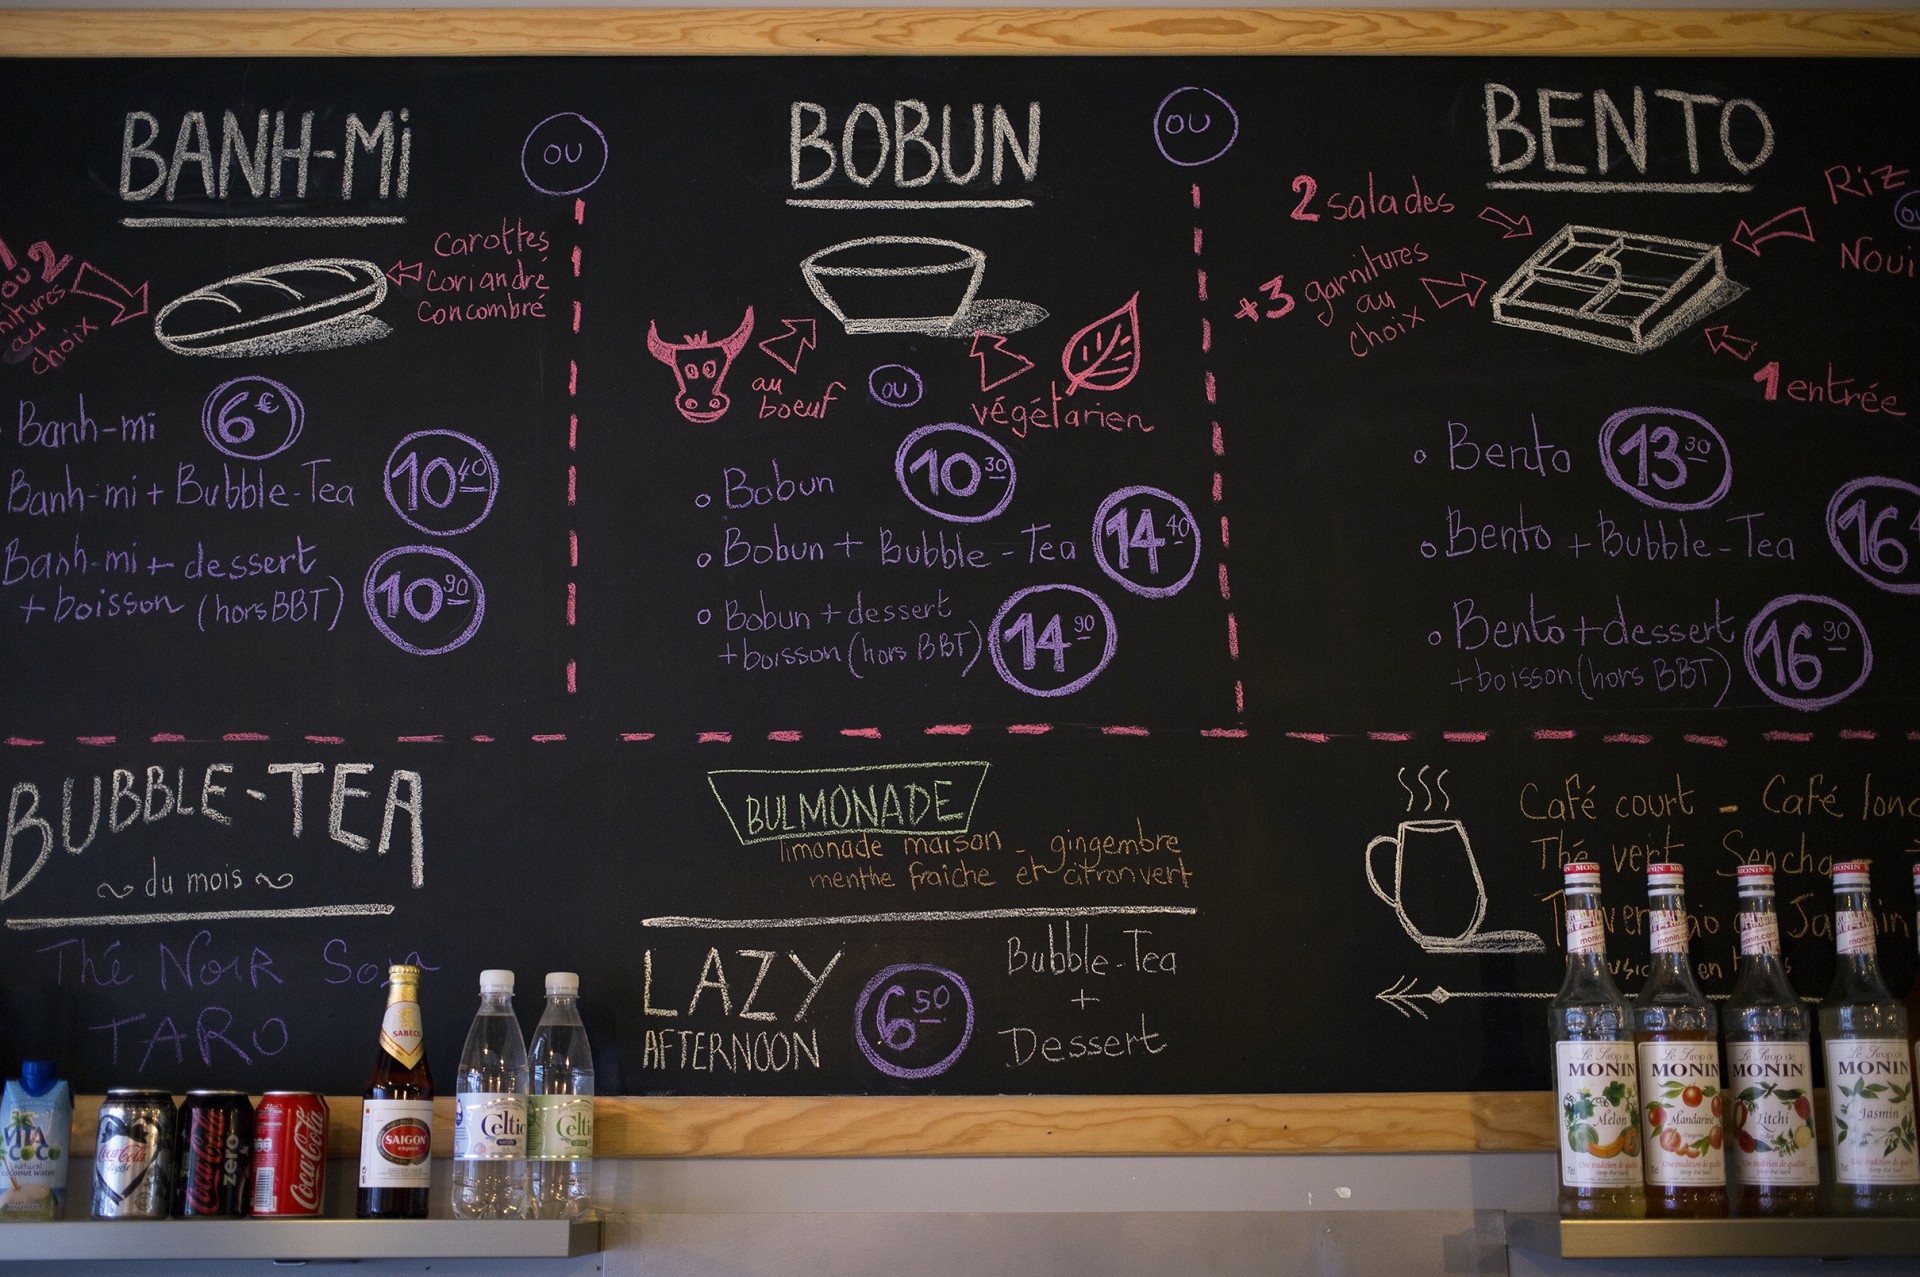 BANH-Mi
1 ou 2
au
choix
Carottes
Coriandre
Concombre
Banh-mi 6€
Banh-mi + Bubble-Tea 10 40
Banh-mi + dessert
+ boisson (hors BBT) 10 90
OU
BOBUN
au
boeuf
OU
végétarien
Bobun 10 30
Bobun + Bubble-Tea 14 40
Bobun + dessert
+ boisson (hors BBT) 14 90
OU
BENTO
2 salades
+3 garnitures
au
choix
Riz
OU
1 entrée
Bento 13 30
Bento + Bubble-Tea 16
Bento + dessert
+ boisson (hors BBT) 16 90
BUBBLE-TEA
~ du mois ~
Thé NoiR
TARO
BULMONADE
limonade maison - gingembre
menthe fraiche et citron vert
LAZY
AFTERNOON
6 50
Bubble-Tea
+
Dessert
Café court - Café
Thé vert Sencha
VITA
COCO
natural
coconut water
Coca-Cola
light
Coca-Cola
zero
Coca-Cola
SABECO
SAIGON
export
Celtic
Celtic
MONIN
MONIN
MONIN
MONIN
monin.com
Le Sirop de
MONIN
Melon
Une tradition de qualité
Le Sirop de
MONIN
Mandarine
Une tradition de qualité
Le Sirop de
MONIN
Litchi
Une tradition de qualité
Le Sirop de
MONIN
Jasmin
Une tradition de qualité